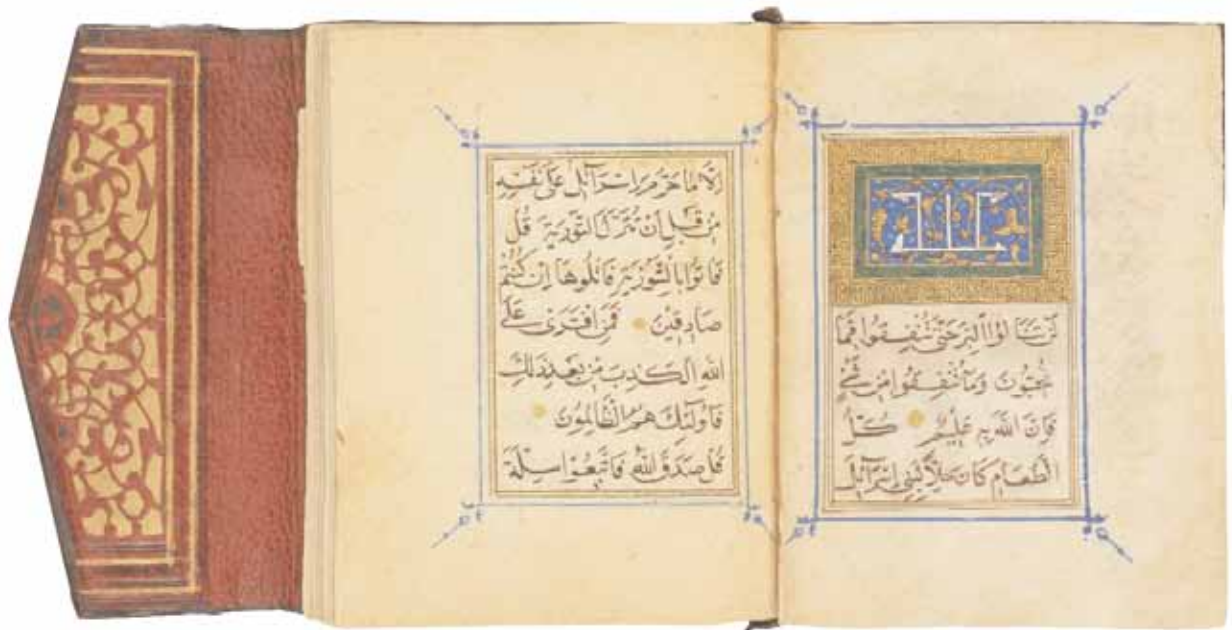 لَنْ تَنَالُوا الْبِرَّ حَتَّىٰ تُنْفِقُوا مِمَّا
تُحِبُّونَ وَمَا تُنْفِقُوا مِنْ شَيْءٍ
فَإِنَّ اللَّهَ بِهِ عَلِيمٌ كُلُّ
الطَّعَامِ كَانَ حِلًّا لِبَنِي إِسْرَآئِلَ
إِلَّا مَا حَرَّمَ إِسْرَآئِلُ عَلَى نَفْسِهِ
مِنْ قَبْلِ أَنْ تُنَزَّلَ التَّوْرَيةُ قُلْ
فَأْتُوا بِالتَّوْرَيةِ فَاتْلُوهَا إِنْ كُنْتُمْ
صَادِقِينَ فَمَنِ افْتَرَىٰ عَلَى
اللَّهِ الْكَذِبَ مِنْ بَعْدِ ذَلِكَ
فَأُولَئِكَ هُمُ الظَّالِمُونَ
قُلْ صَدَقَ اللَّهُ فَاتَّبِعُوا مِلَّةَ